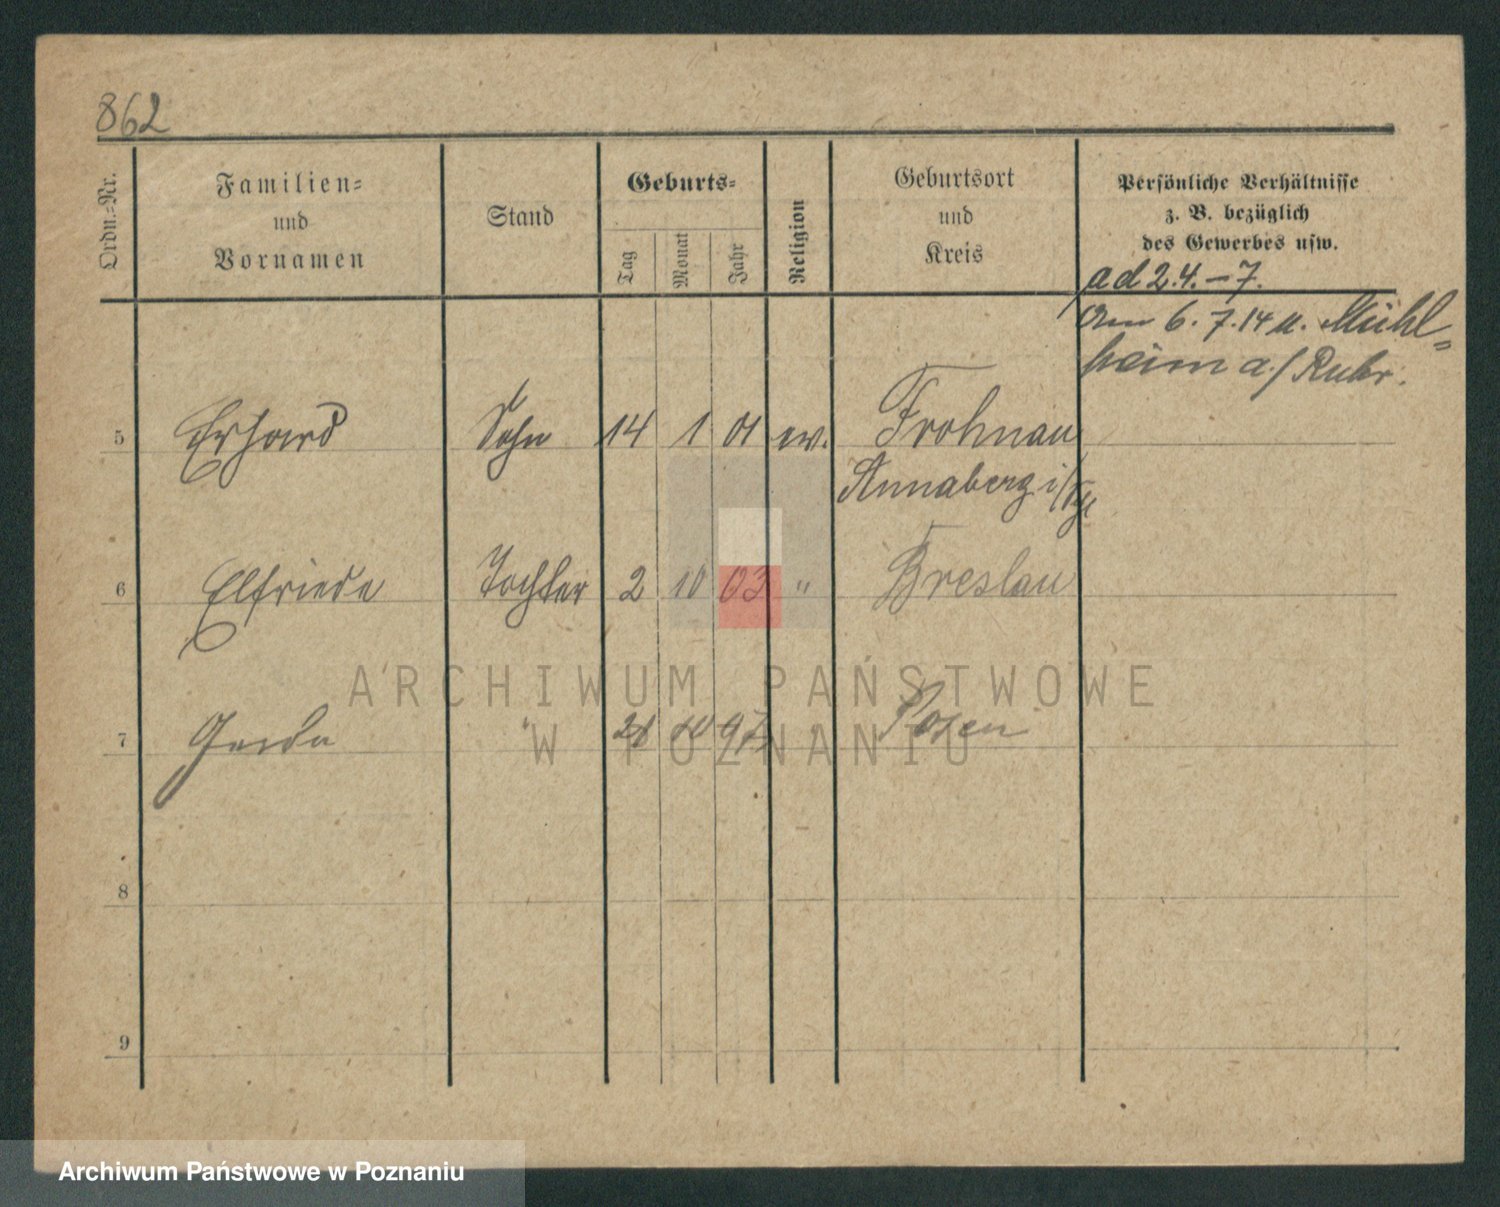 862
Ordn.-Nr.
Familien-
und
Vornamen
Stand
Geburts-
Tag
Monat
Jahr
Religion
Geburtsort
und
Kreis
Persönliche Verhältnisse
z. B. bezüglich
des Gewerbes usw.
ad 2.4.–7.
Am 6.7.14 n. Mühl-
heim a/Ruhr.
5 Erhard Sohn 14 1 01 ev. Frohnau
Annaberg i/
6 Elfriede Tochter 2 10 03 " Breslau
7 Gerda " 10 Posen
8
9
ARCHIWUM PAŃSTWOWE
W POZNANIU
Archiwum Państwowe w Poznaniu